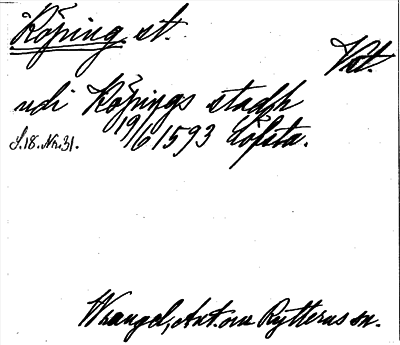 Köping. st.
Vst.
udi Köpings stadh
19/6 1593 Löfsta.
S.18.Nr.31.
Wrangel, Ant. om Rytterns sn.